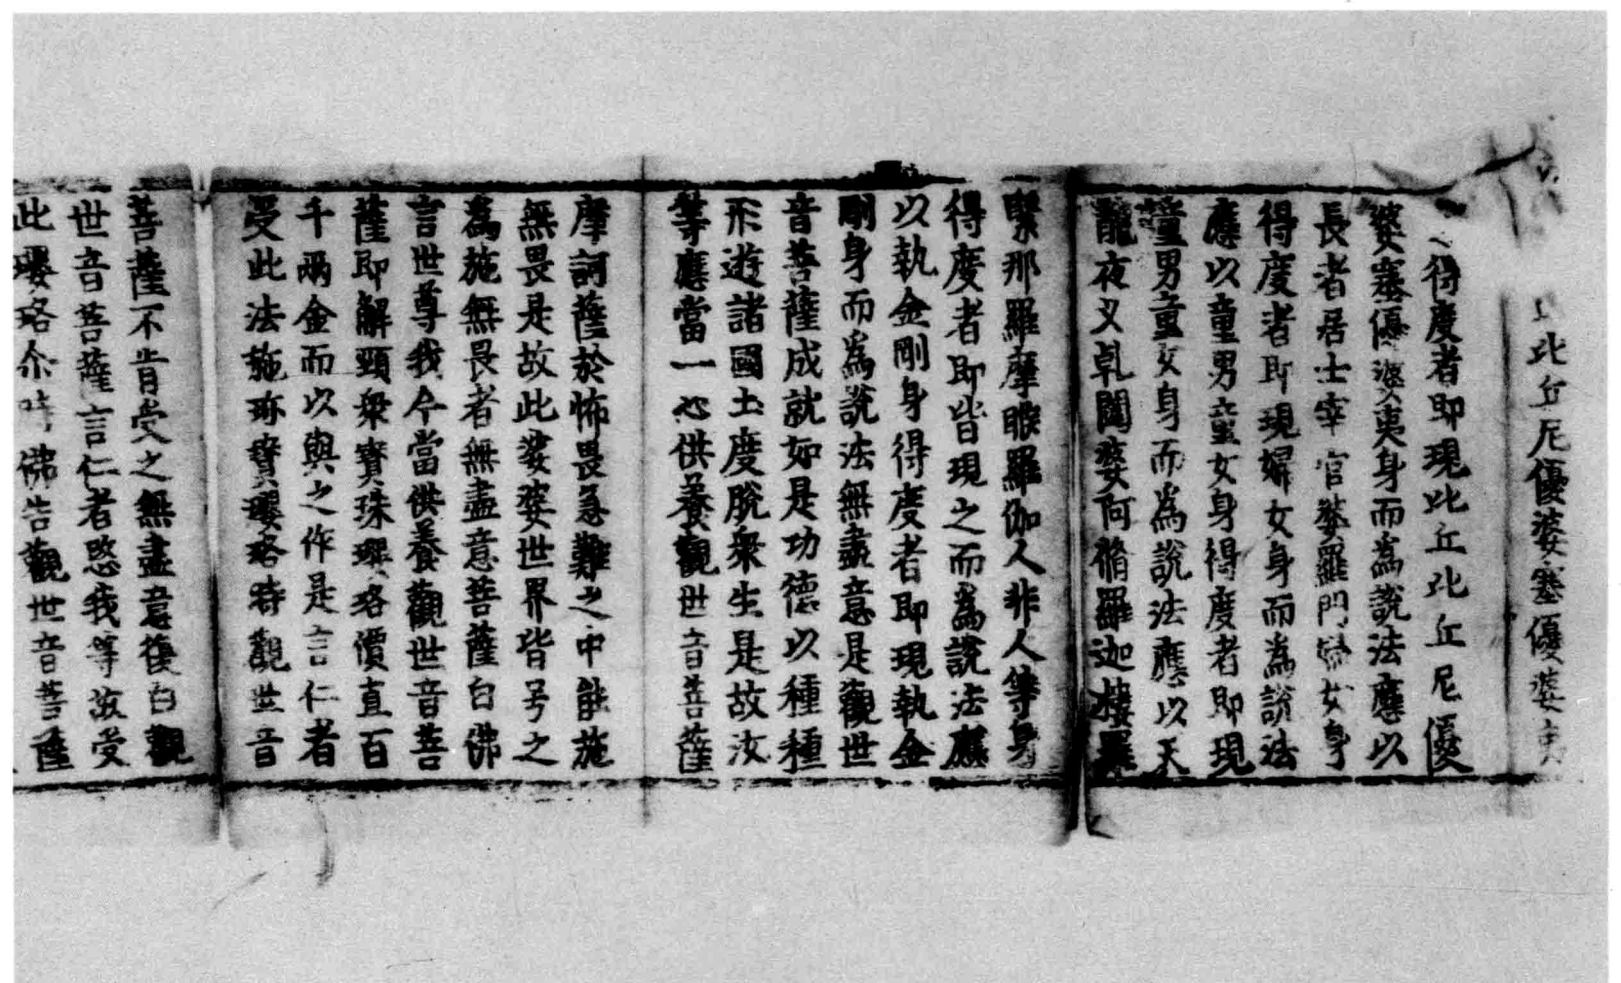 比丘尼優婆塞優婆夷
得度者即現比丘比丘尼優
婆塞優婆夷身而為說法應以
長者居士宰官婆羅門婦女身
得度者即現婦女身而為說法
應以童男童女身得度者即現
童男童女身而為說法應以天
龍夜叉乹闥婆阿脩羅迦樓羅
緊那羅摩睺羅伽人非人等身
得度者即皆現之而為說法應
以執金剛身得度者即現執金
剛身而為說法無盡意是觀世
音菩薩成就如是功德以種種
形遊諸國土度脫衆生是故汝
等應當一心供養觀世音菩薩
摩訶薩於怖畏急難之中能施
無畏是故此娑婆世界皆号之
為施無畏者無盡意菩薩白佛
言世尊我今當供養觀世音菩
薩即解頸衆寶珠瓔珞價直百
千兩金而以與之作是言仁者
受此法施珎寶瓔珞時觀世音
菩薩不肯受之無盡意復白觀
世音菩薩言仁者愍我等故受
此瓔珞尒時佛告觀世音菩薩